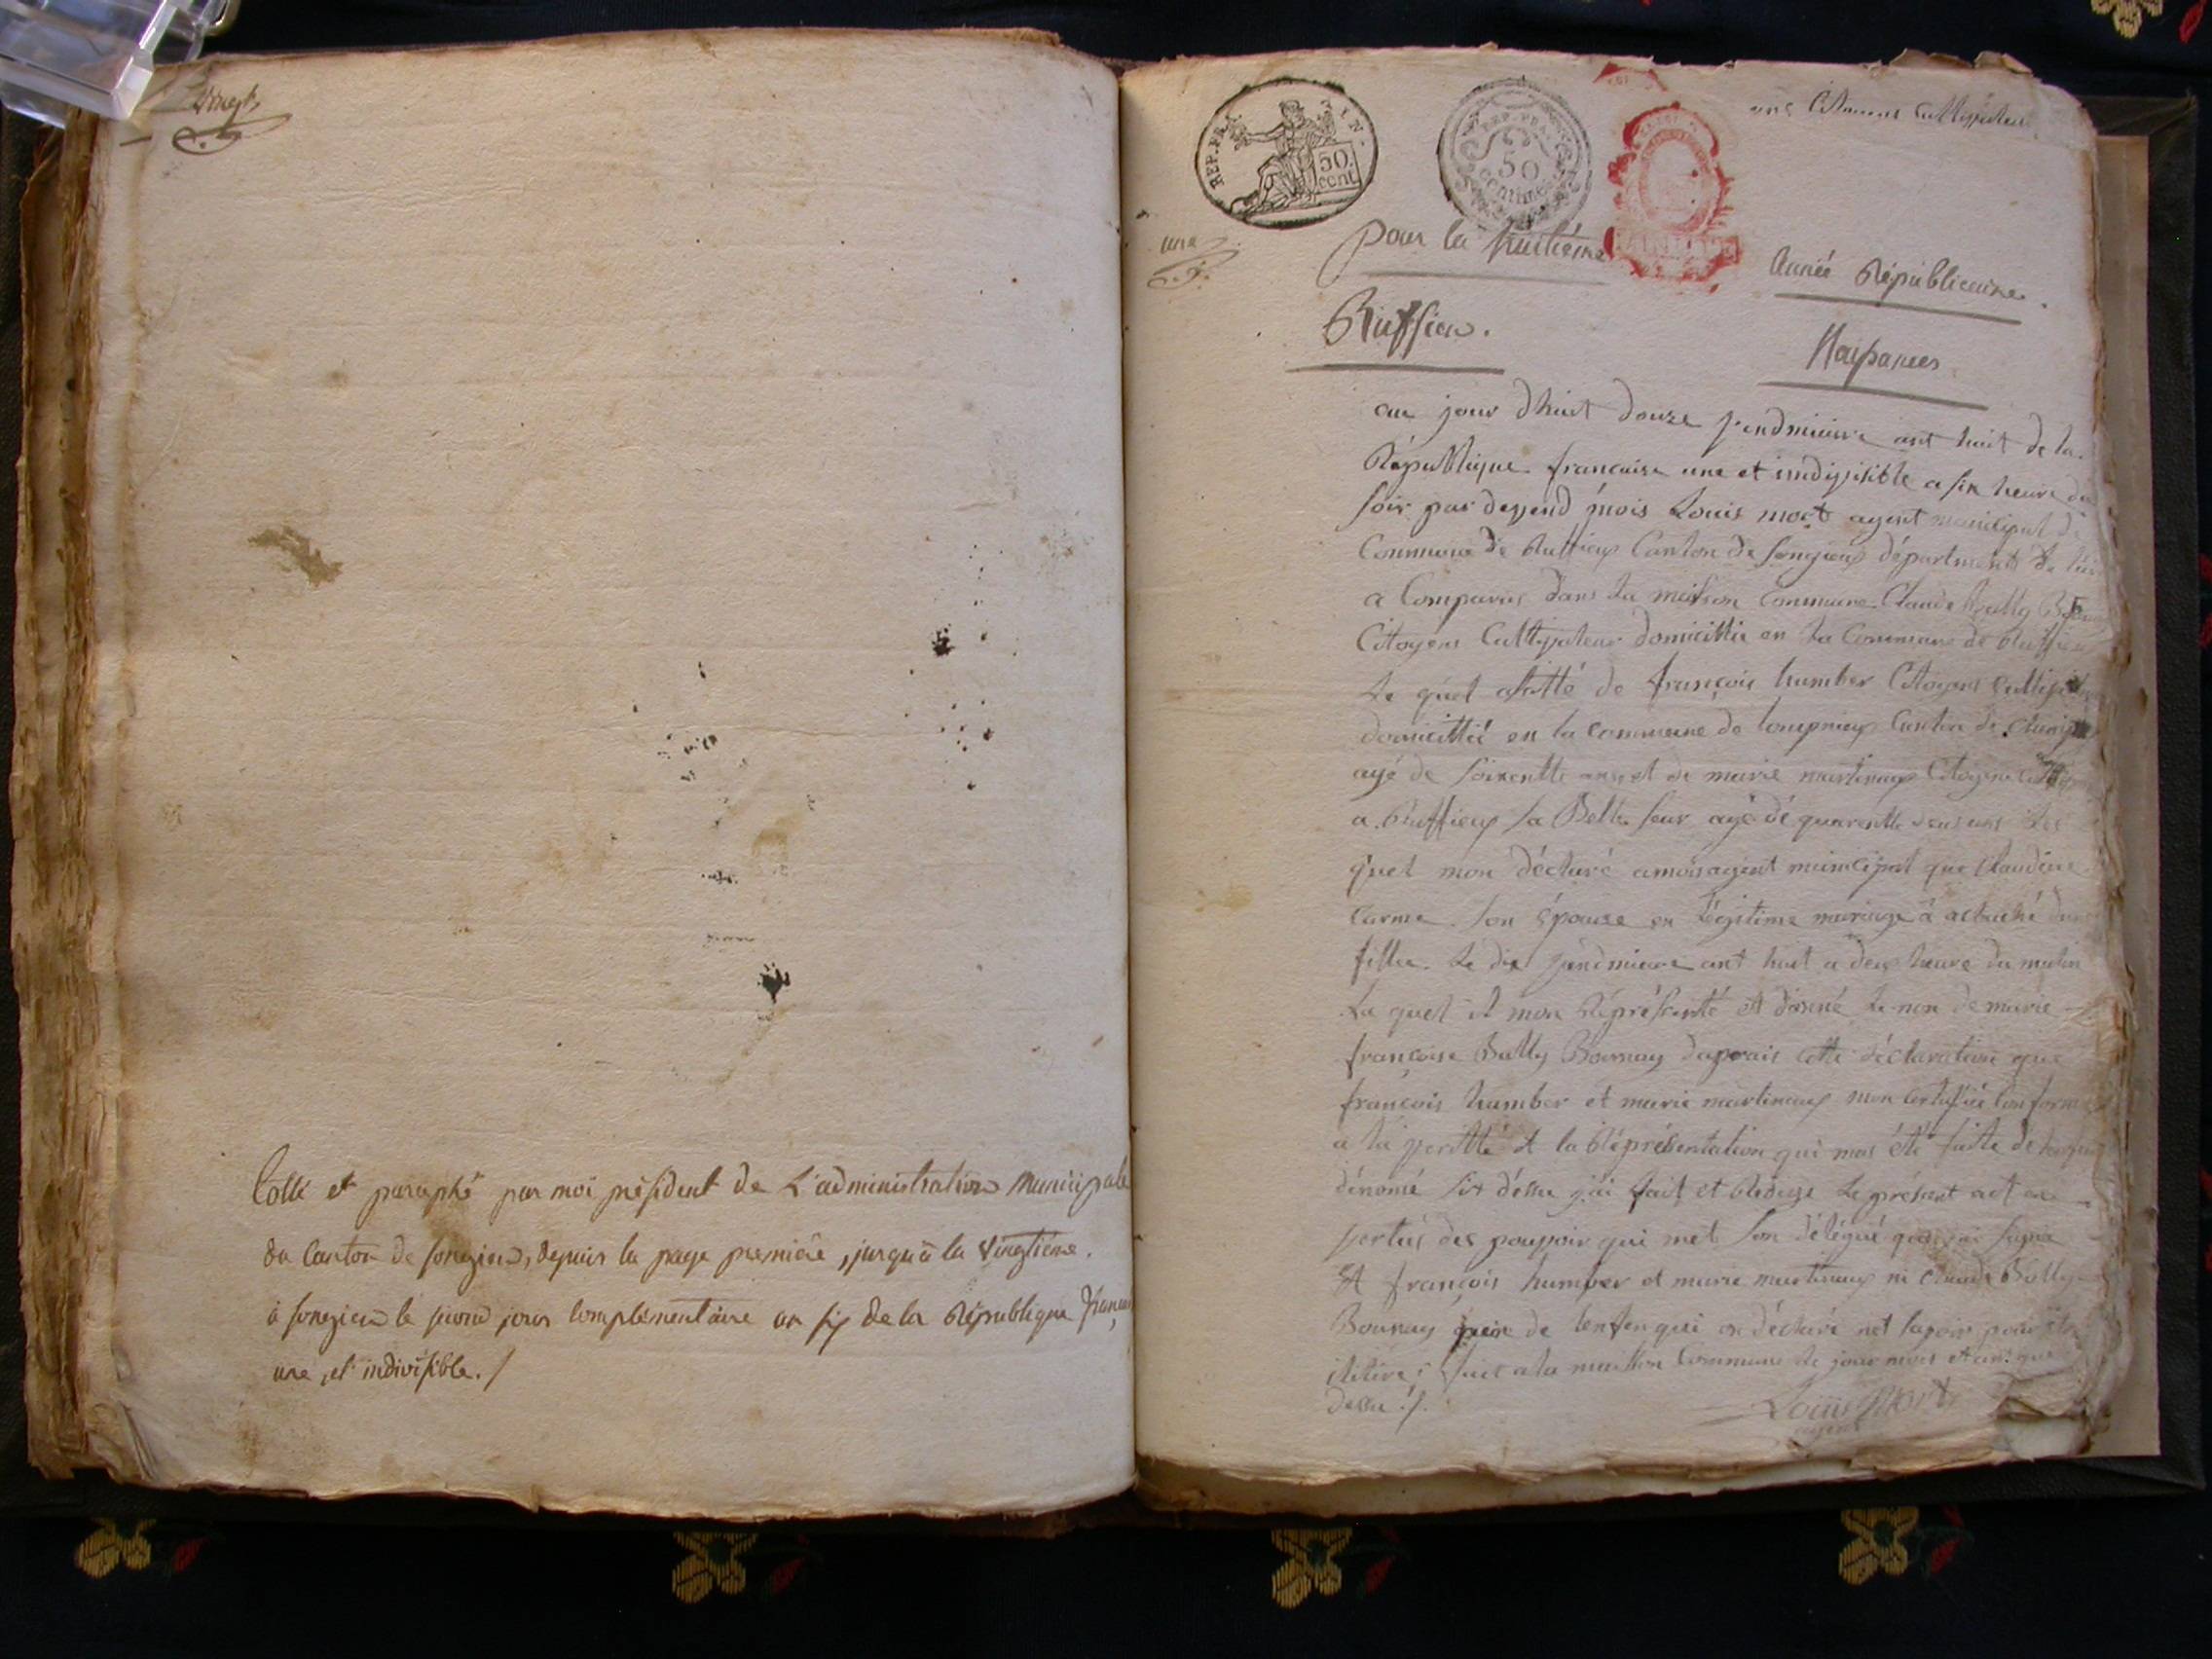 vingt
Collé et paraphé par moi président de L'administration Municipale
du Canton de songieu, depuis la page premiere, jusqu'à la vingtiéme.
à songieu le second jour complémentaire an six de la République
une, et indivisible. /
REP. FRA. IN.
50. cent
REP. FRA.
50
centimes
Citoyens Cultivateur
une
pour la huitiéme Année Républicaine.
Ruffieu. Naissances
au jour dhuit douze vendmiaire ant huit de la
République francaise une et indivisible a six heure du
soir par devend mois Louis mort agent municipal de
Commune de Ruffieux Canton de songieux département de
a Comparus dans la maison Commune Claude Bally
Citoyens Cultivateur domicillié en la Commune de Ruffieux
Le quel asisté de françois humber Citoyens
domicillié en la commune de lompnieux Canton de
agé de soixentte ans et de marie martinaux
a Ruffieux sa Belle seur agé de quarentte deux ans Les
quel mon déclaré a mois agent municipal que Claudine
carme son épouse en légitime mariage à acbuché dune
fillie Le dix vendmiaire ant huit a deux heure du matin
La quel il mon Répresenté et donné le non de marie
françoise Bally Bournay daprais cette déclaration que
françois humber et marie martinaux mon certifié conforme
a la veritté et la Représentation qui mas été faite de
dénomé sit déssu jai fait et Rédige le présent act en
vertus des pouvoir qui met son délégué que jai signé
Et françois humber et marie martinaux ni Claude Bally
Bournay peire de lenfen qui on déclaré net savoir pour
ilitire; fait a la maison Commune le jour mois et an que
dessu ./.
Louis Mort
agent